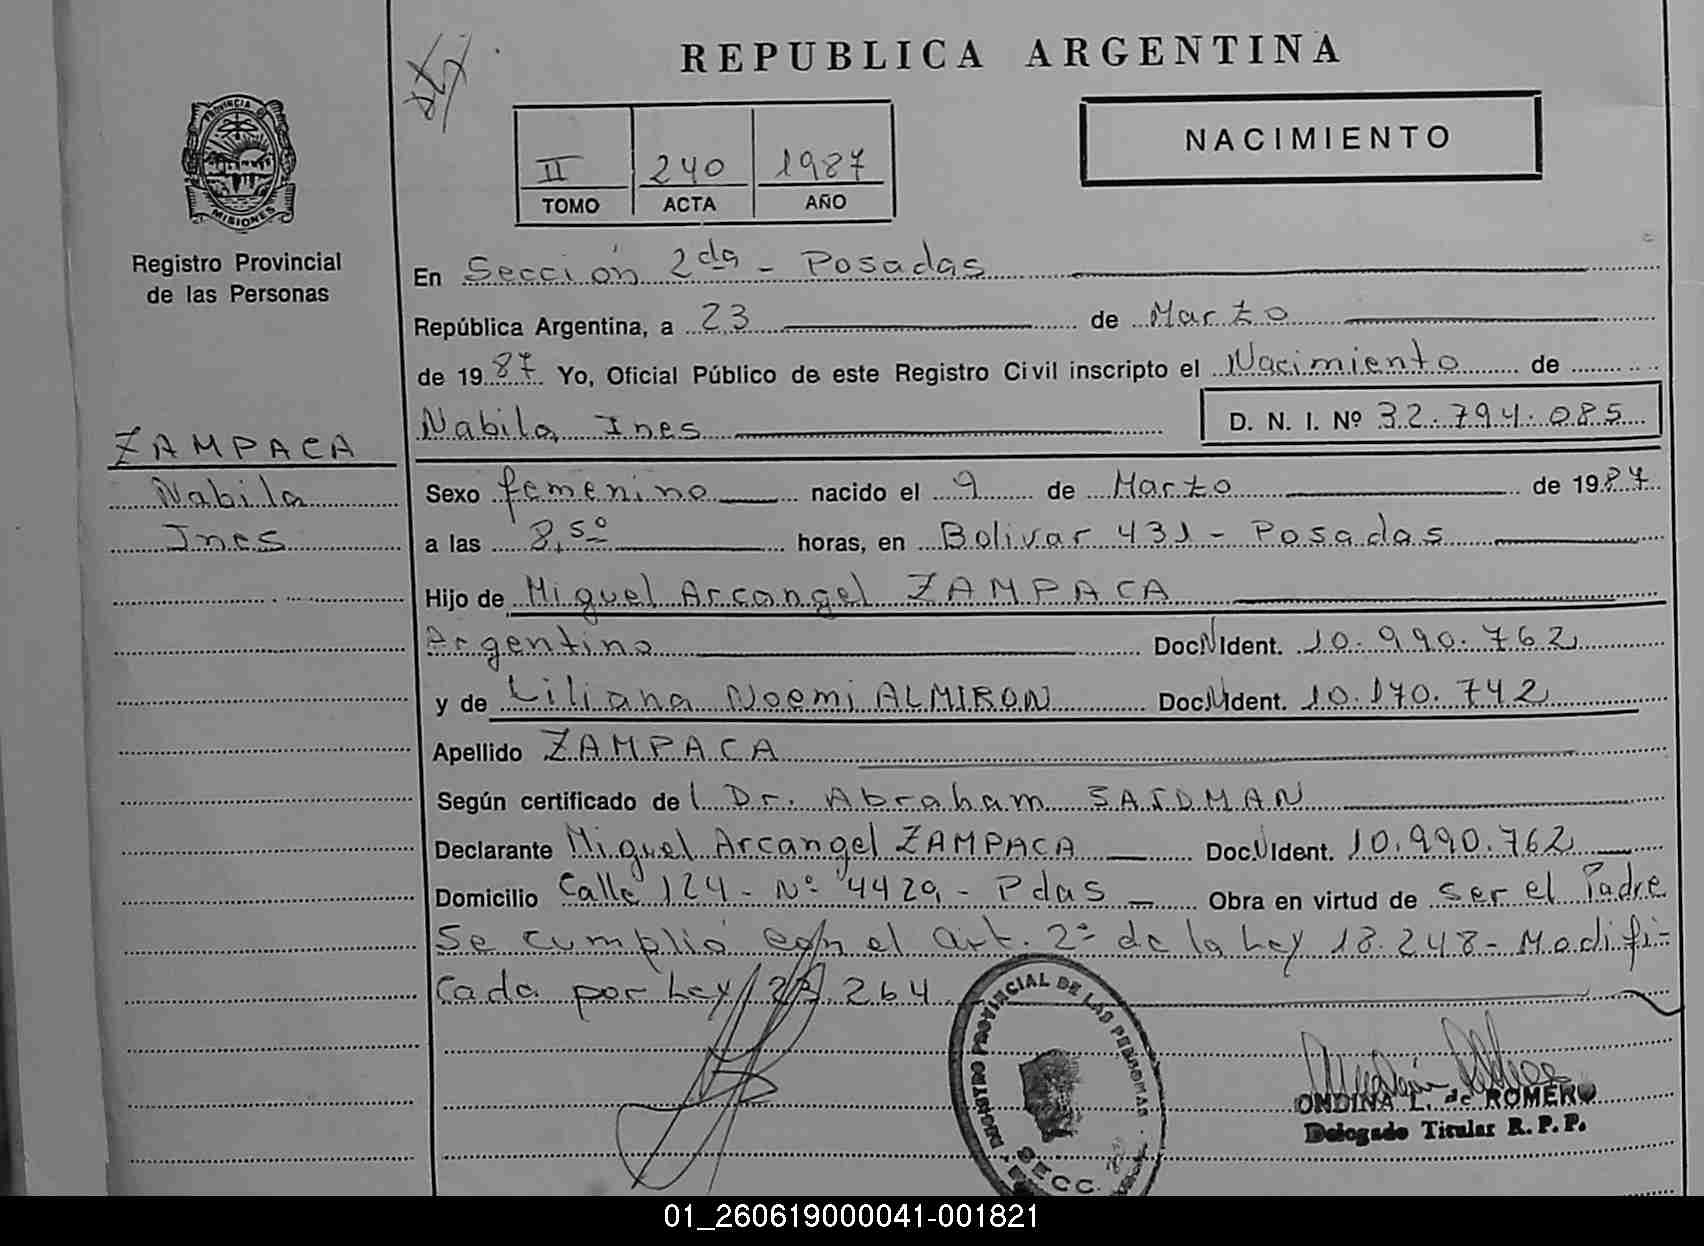 REPUBLICA ARGENTINA
NACIMIENTO
II 240 1987
TOMO ACTA AÑO
PROVINCIA DE
MISIONES
Registro Provincial
de las Personas
ZAMPACA
Nabila
Ines
En Sección 2da - Posadas
República Argentina, a 23 de Marzo
de 1987 Yo, Oficial Público de este Registro Civil inscripto el Nacimiento de
Nabila Ines D. N. I. Nº 32.794.085
Sexo femenino nacido el 9 de Marzo de 1987
a las 8,50 horas, en Bolivar 431 - Posadas
Hijo de Miguel Arcangel ZAMPACA
Argentino Doc. N Ident. 10.990.762
y de Liliana Noemi ALMIRON Doc. N Ident. 10.170.742
Apellido ZAMPACA
Según certificado del Dr. Abraham SAIDMAN
Declarante Miguel Arcangel ZAMPACA Doc. N Ident. 10.990.762
Domicilio Calle 124 - Nº 4429 - Pdas Obra en virtud de ser el Padre
Se cumplió con el art. 2º de la Ley 18.248 - Modifi-
cada por Ley 23.264
REGISTRO PROVINCIAL DE LAS PERSONAS
SECC.
ONDINA L. de ROMERO
Delegado Titular R. P. P.
01_260619000041-001821